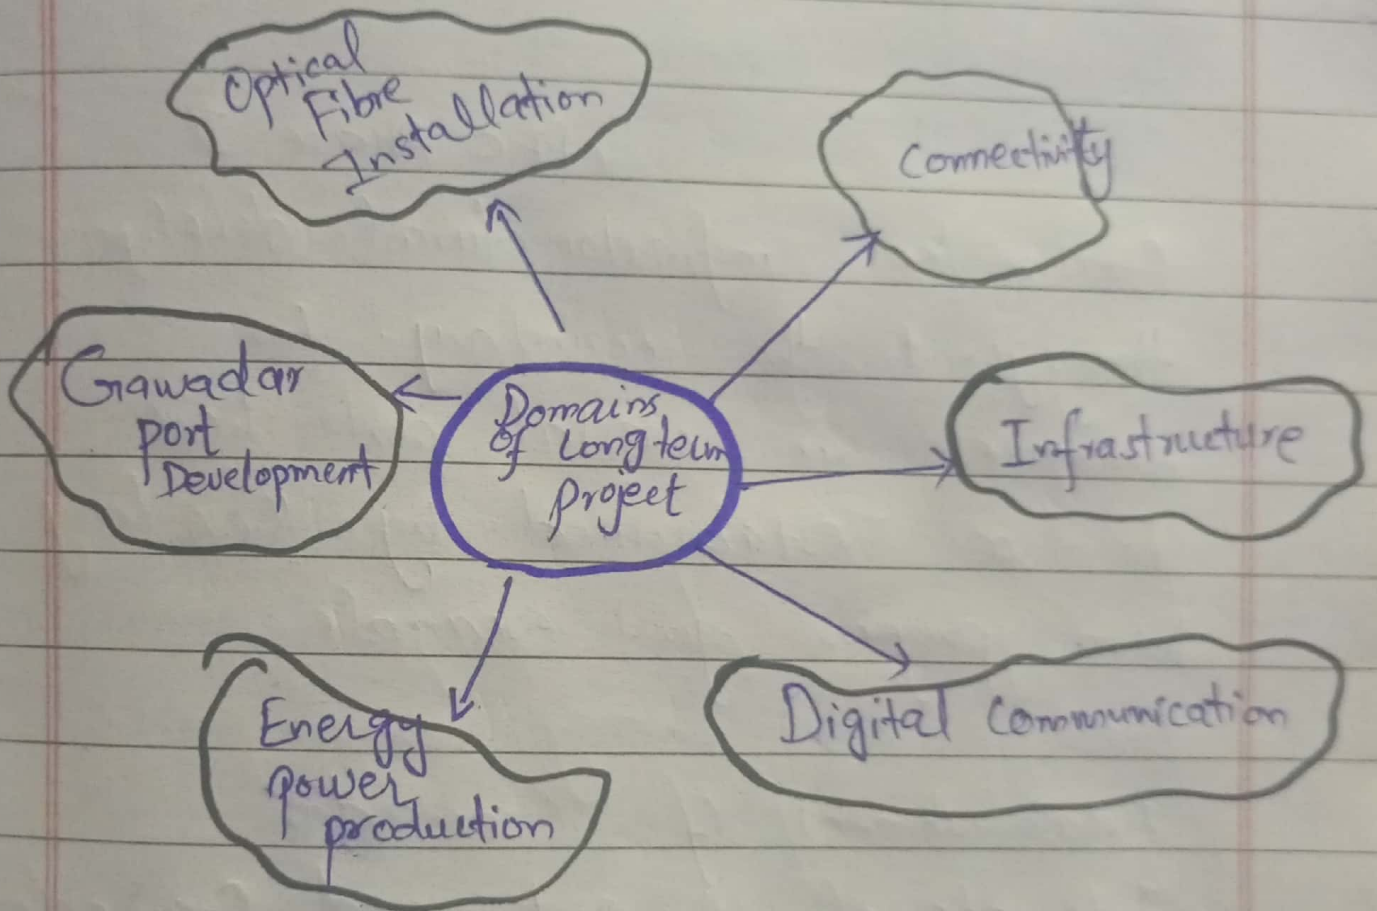 Optical
Fibre
Installation
Connectivity
Gawadar
port
Development
Domains
of Long term
project
Infrastructure
Energy
power
production
Digital Communication